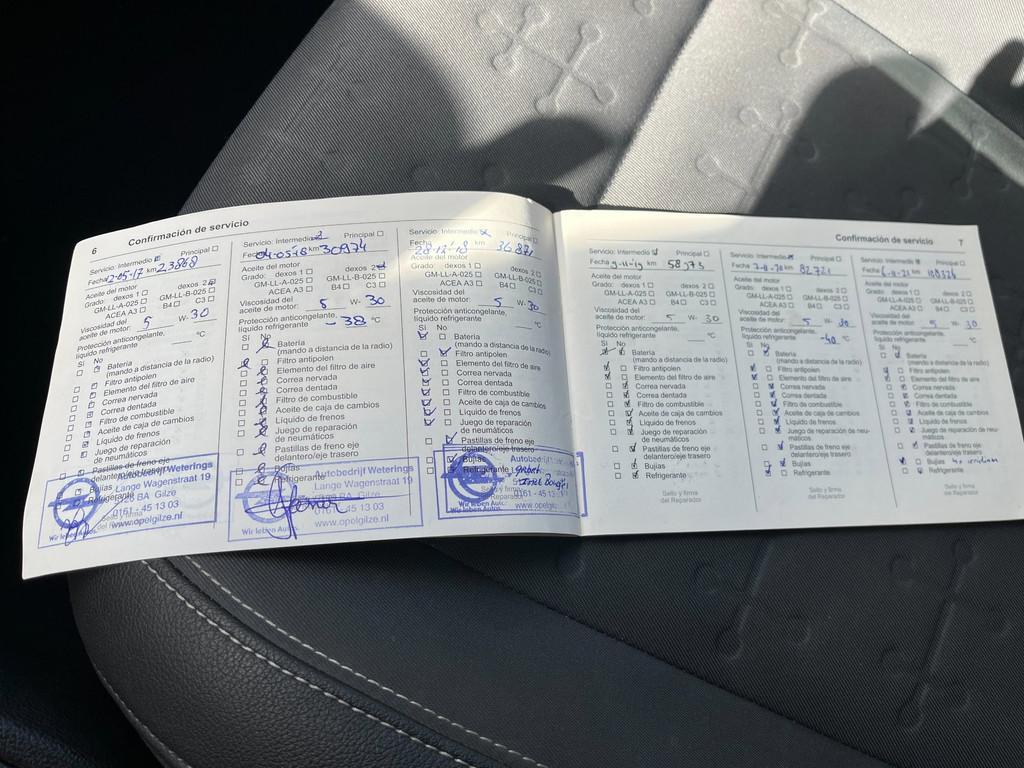 6 Confirmación de servicio
Servicio: Intermedio Principal
Fecha 12-05-17 km 23868
Aceite del motor
Grado: dexos 1 dexos 2
GM-LL-A-025 GM-LL-B-025
ACEA A3 B4 C3
Viscosidad del
aceite de motor: 5 W- 30
Protección anticongelante,
líquido refrigerante °C
Si No
Batería
(mando a distancia de la radio)
Filtro antipolen
Elemento del filtro de aire
Correa nervada
Correa dentada
Filtro de combustible
Aceite de caja de cambios
Líquido de frenos
Juego de reparación
de neumáticos
Pastillas de freno eje
delantero/eje trasero
Bujías
Refrigerante
Autobedrijf Weterings
Lange Wagenstraat 19
BA Gilze
0161 - 45 13 03
www.opelgilze.nl
Wir leben Autos.
Servicio: Intermedio Principal
Fecha 04-05-18 km 30974
Aceite del motor
Grado: dexos 1 dexos 2
GM-LL-A-025 GM-LL-B-025
ACEA A3 B4 C3
Viscosidad del
aceite de motor: 5 W- 30
Protección anticongelante,
líquido refrigerante -38 °C
Si No
Batería
(mando a distancia de la radio)
Filtro antipolen
Elemento del filtro de aire
Correa nervada
Correa dentada
Filtro de combustible
Aceite de caja de cambios
Líquido de frenos
Juego de reparación
de neumáticos
Pastillas de freno eje
delantero/eje trasero
Bujías
Refrigerante
Autobedrijf Weterings
Lange Wagenstraat 19
BA Gilze
0161 - 45 13 03
www.opelgilze.nl
Wir leben Autos.
Servicio: Intermedio Principal
Fecha 28-12-18 km 36871
Aceite del motor
Grado: dexos 1 dexos 2
GM-LL-A-025 GM-LL-B-025
ACEA A3 B4 C3
Viscosidad del
aceite de motor: 5 W- 30
Protección anticongelante,
líquido refrigerante °C
Si No
Batería
(mando a distancia de la radio)
Filtro antipolen
Elemento del filtro de aire
Correa nervada
Correa dentada
Filtro de combustible
Aceite de caja de cambios
Líquido de frenos
Juego de reparación
de neumáticos
Pastillas de freno eje
delantero/eje trasero
Bujías
Refrigerante
0161 - 45 13 03
Wir leben Autos.
Confirmación de servicio 7
Servicio: Intermedio Principal
Fecha 9-11-19 km 58573
Aceite del motor
Grado: dexos 1 dexos 2
GM-LL-A-025 GM-LL-B-025
ACEA A3 B4 C3
Viscosidad del
aceite de motor: 5 W- 30
Protección anticongelante,
líquido refrigerante °C
Si No
Batería
(mando a distancia de la radio)
Filtro antipolen
Elemento del filtro de aire
Correa nervada
Correa dentada
Filtro de combustible
Aceite de caja de cambios
Líquido de frenos
Juego de reparación
de neumáticos
Pastillas de freno eje
delantero/eje trasero
Bujías
Refrigerante
Sello y firma
del Reparador
Servicio: Intermedio Principal
Fecha km 82721
Aceite del motor
Grado: dexos 1 dexos 2
GM-LL-A-025 GM-LL-B-025
ACEA A3 B4 C3
Viscosidad del
aceite de motor: 5 W- 30
Protección anticongelante,
líquido refrigerante -40 °C
Si No
Batería
(mando a distancia de la radio)
Filtro antipolen
Elemento del filtro de aire
Correa nervada
Correa dentada
Filtro de combustible
Aceite de caja de cambios
Líquido de frenos
Juego de reparación de neu-
máticos
Pastillas de freno eje
delantero/eje trasero
Bujías
Refrigerante
Sello y firma
del Reparador
Servicio: Intermedio Principal
Fecha km
Aceite del motor
Grado: dexos 1 dexos 2
GM-LL-A-025 GM-LL-B-025
ACEA A3 B4 C3
Viscosidad del
aceite de motor: 5 W- 30
Protección anticongelante,
líquido refrigerante °C
Si No
Batería
(mando a distancia de la radio)
Filtro antipolen
Elemento del filtro de aire
Correa nervada
Correa dentada
Filtro de combustible
Aceite de caja de cambios
Líquido de frenos
Juego de reparación de neu-
máticos
Pastillas de freno eje
delantero/eje trasero
Bujías
Refrigerante
Sello y firma
del Reparador